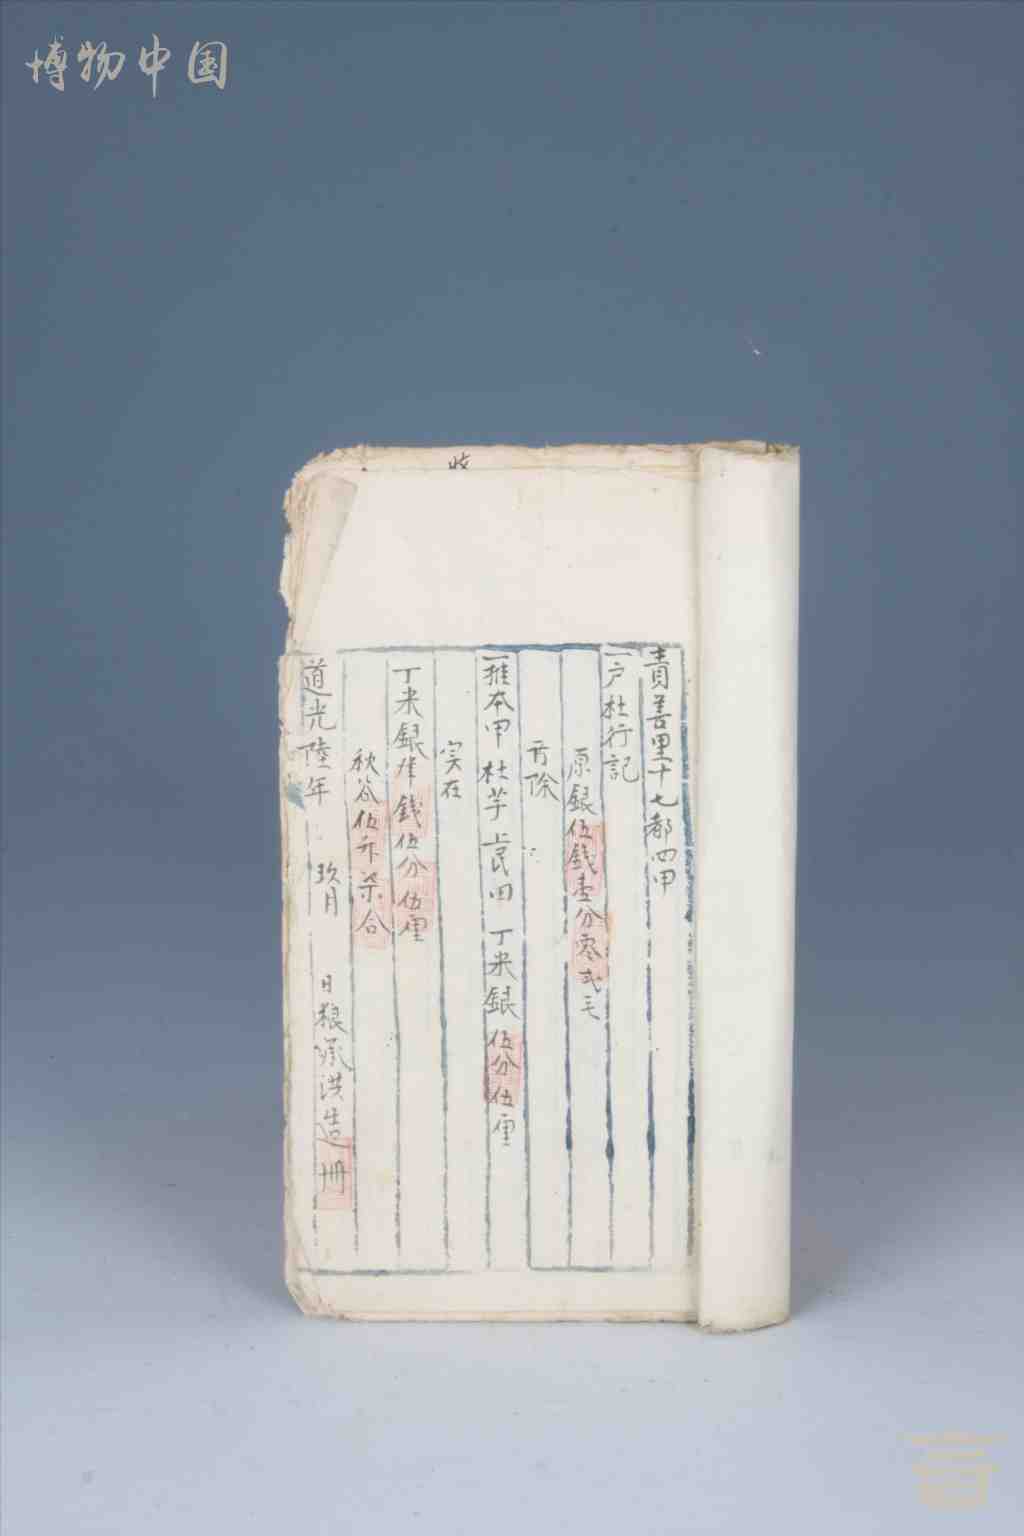 博物中国
責善里十七都四甲
一户杜行記
原銀伍錢壹分零弍毛
開除
一推本甲杜芋民田丁米銀伍分伍厘
实在
丁米銀肆錢伍分伍厘
秋谷伍升柒合
道光陸年 玖月 日粮承洪造冊
收